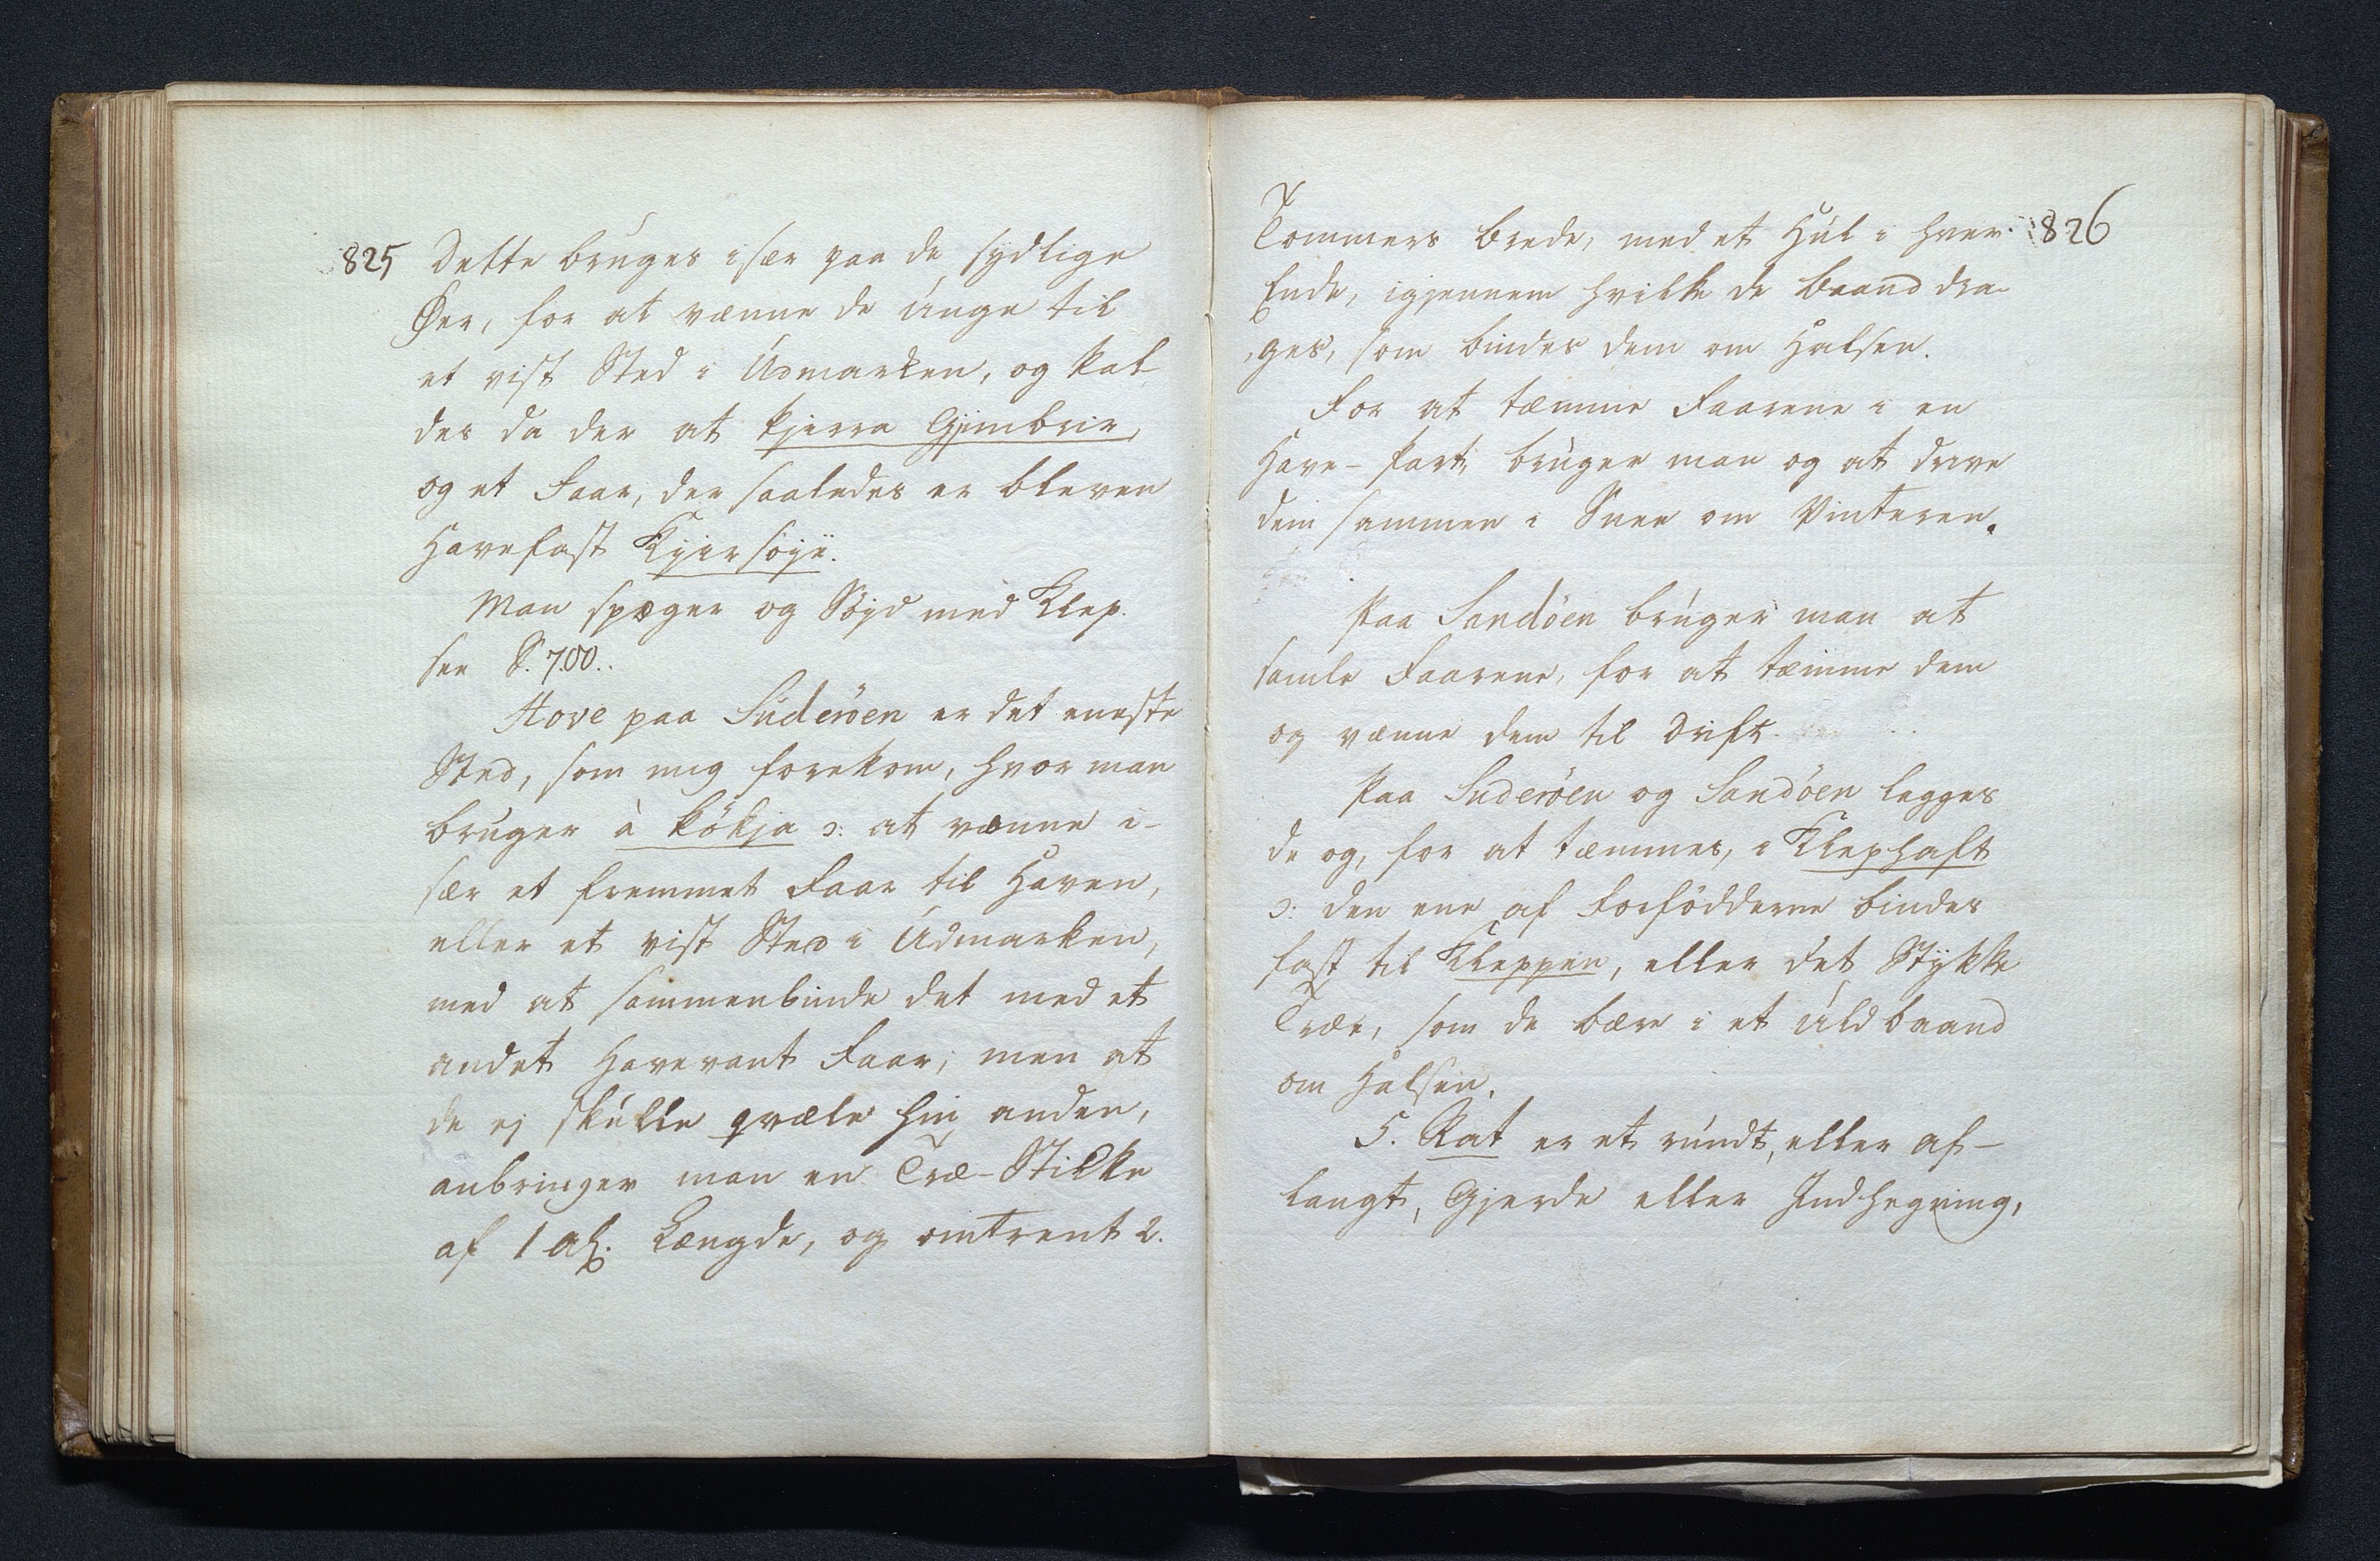 825 Dette bruges især paa de sydlige
Øer, for at vænne de unge til
et vist Sted i Udmarken, og kal-
des da der at kjerra Gjimbrir,
og et Faar, der saaledes er bleven
Havefast Kyirsöjë.
Man spæger og Söyd med Klep.
see S. 700..
Hove paa Suderöen er det eneste
Sted, som mig forekom, hvor man
bruger à kökja ɔ: at vænne i-
sær et fremmet Faar til Haven,
eller et vist Sted i Udmarken,
med at sammenbinde det med et
andet Havevant Faar; men at
de ej skulle qvæle hin anden,
anbringer man en Træ-Stikke
af 1 Al. Længde, og omtrent 2.
Tommers Brede, med et Hul i hver 826
Ende, igjennem hvilke de Baand dra-
ges, som bindes dem om Halsen.
For at tæmme Faarene i en
Have-Part, bruger man og at drive
dem sammen i Snee om Vinteren.
Paa Sandöen bruger man at
samle Faarene, for at tæmme dem
og vænne dem til Drift.
Paa Suderöen og Sandöen legges
de og, for at tæmmes, i Klephaft
ɔ: den ene af Forfödderne bindes
fast til Kleppen, eller det Stykke
Træe, som de bære i et Uldbaand
om Halsen.
5. Rat er et rundt, eller af-
langt, Gjerde eller Indhegning,